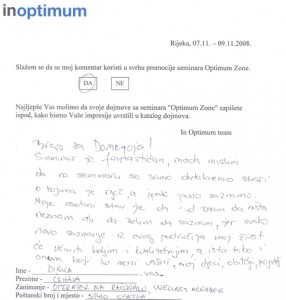 inoptimum
Rijeka, 07.11. – 09.11.2008.
Slažem se da se moj komentar koristi u svrhu promocije seminara Optimum Zone.
DA NE
Najljepše Vas molimo da svoje dojmove sa seminara "Optimum Zone" zapišete
ispod, kako bismo Vaše impresije uvrstili u katalog dojmova.
In Optimum team
Bravo za Domagoja!
Seminar je fantastičan,
da na seminaru se samo stvari
o kojima je riječ, a ipak puno saznamo.
Moje osobni stav je da
neznam ali da želim da saznam, jer svako
novo saznanje iz ovog područja moj život
će učiniti boljim i kvalitetnijim, a isto tako i
onima koji su meni važni, moj djeci, obitelji,
Ime =
Prezime =
Zanimanje = OPERATER NA RAČUNALU, WELLNES MENAĐER
Poštanski broj i mjesto =